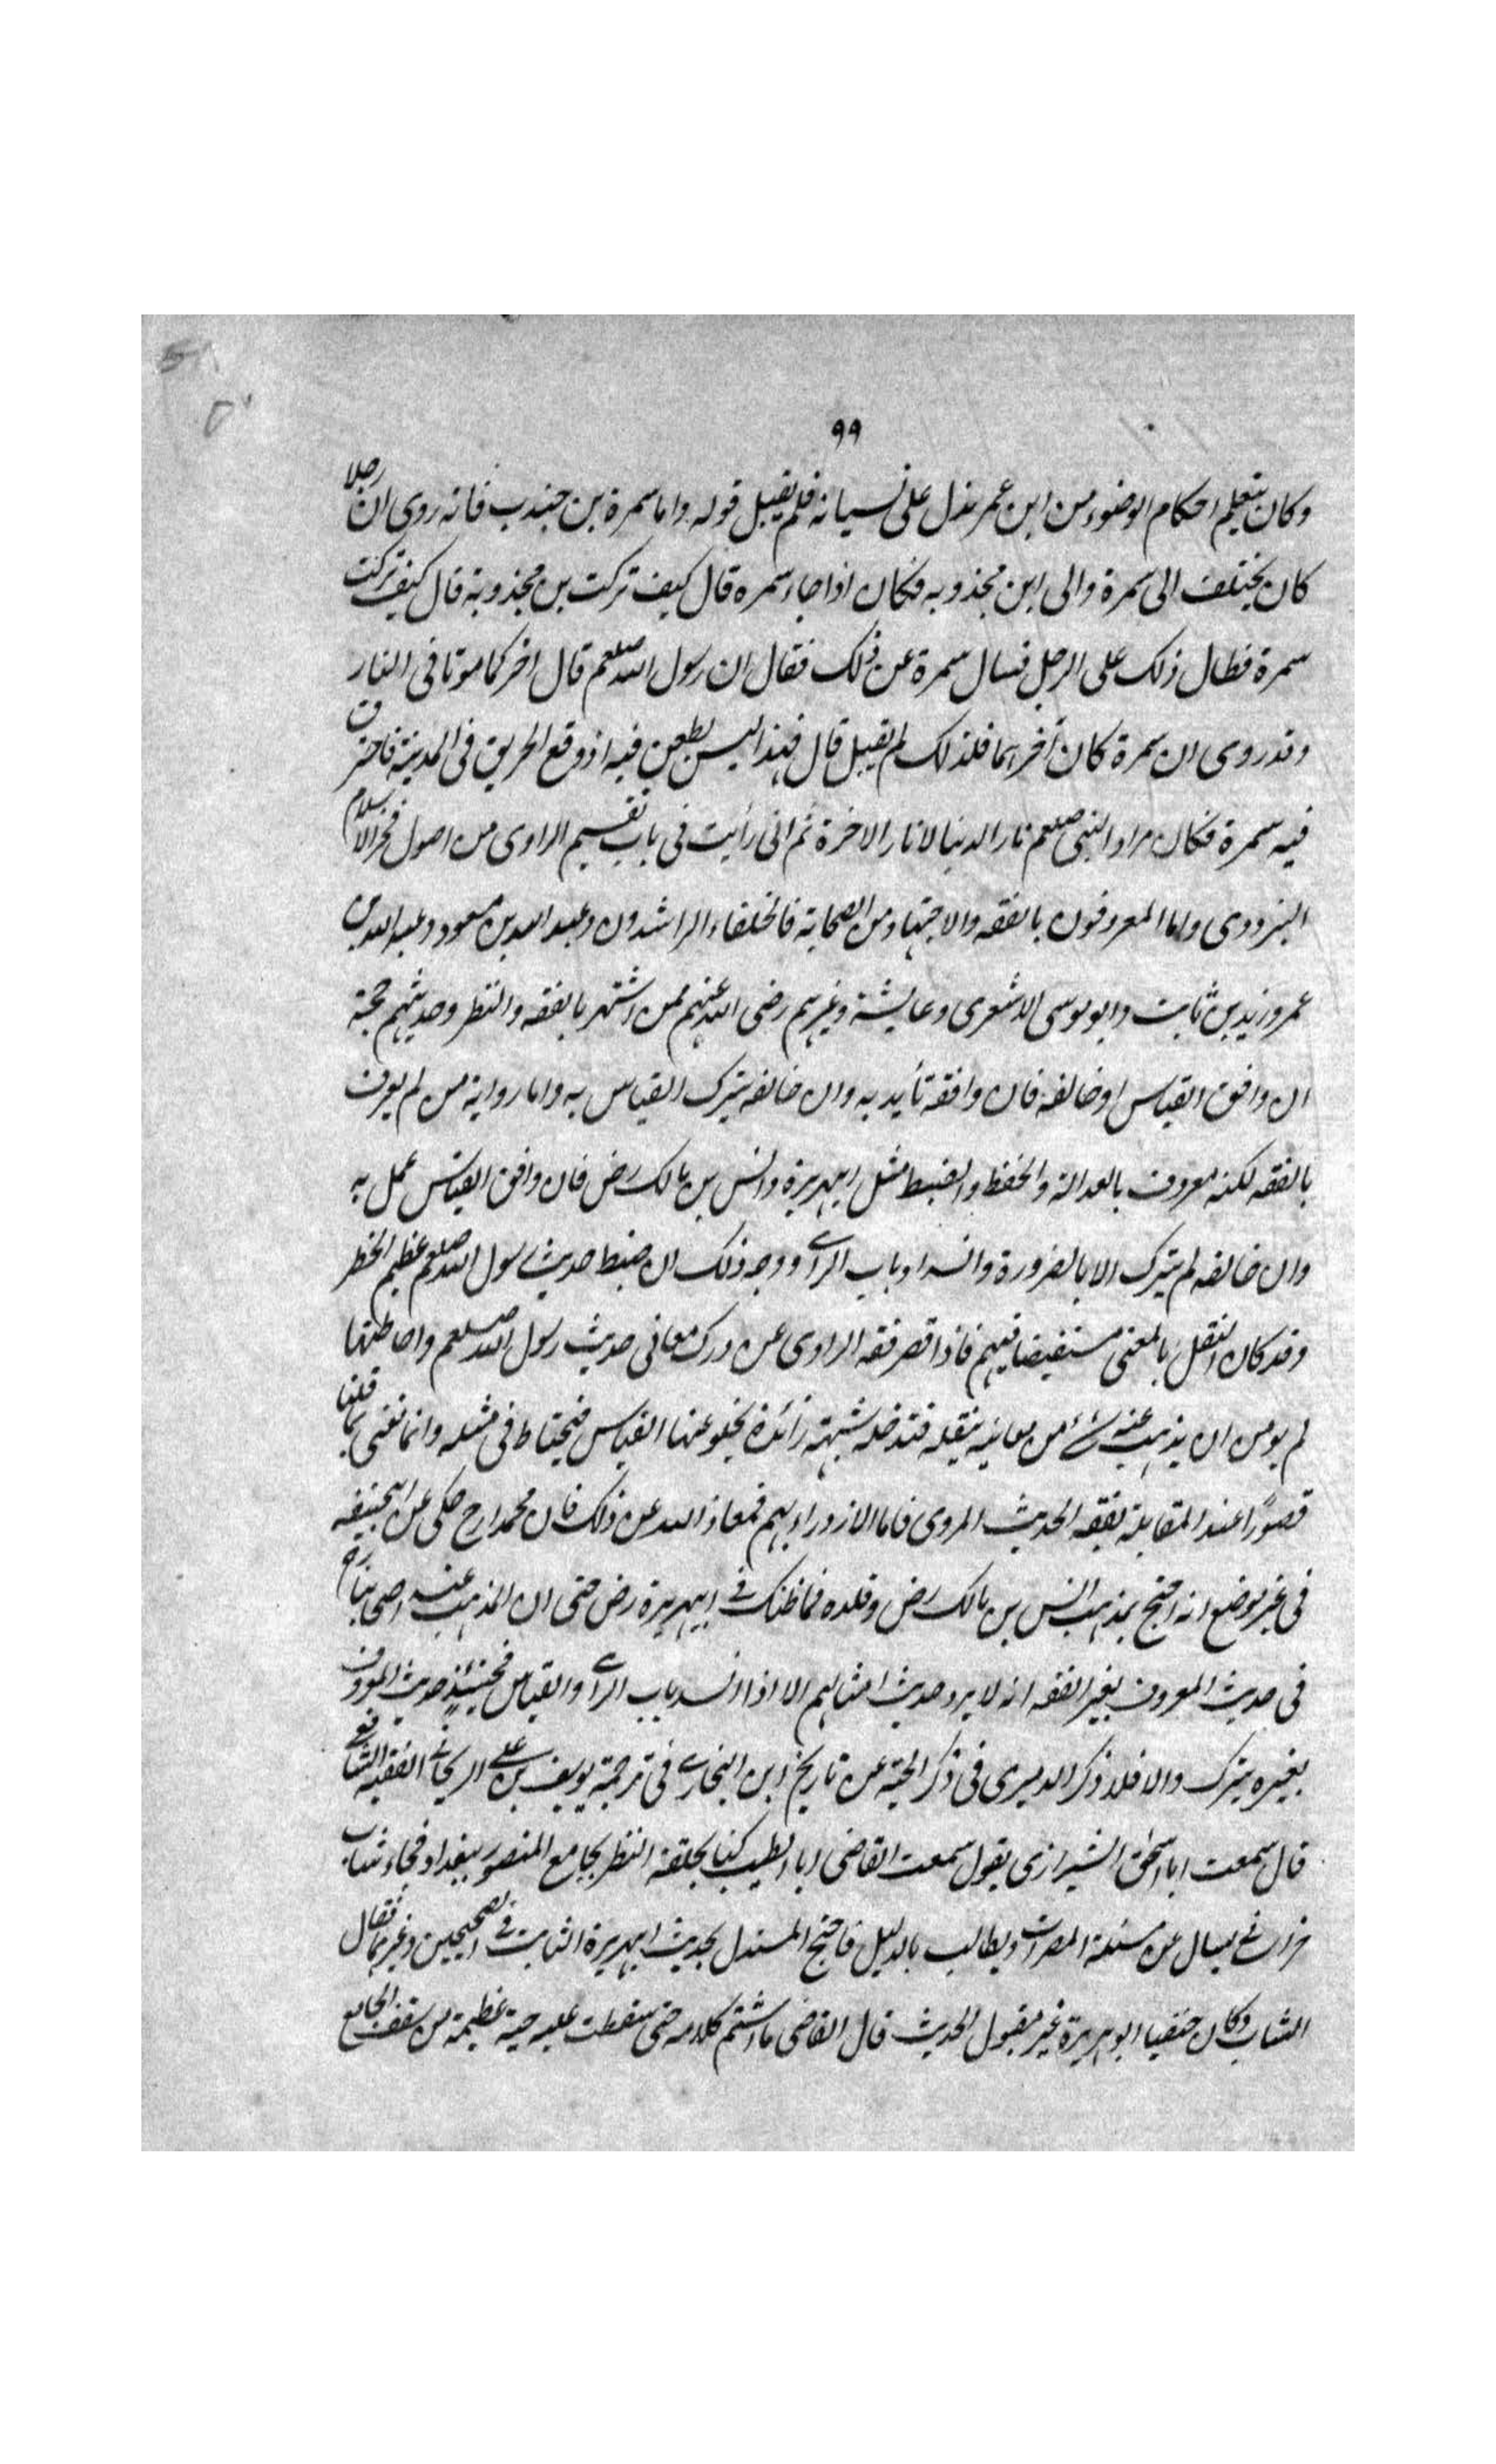 ٩٩
وكان يتعلم احكام الوضوء من ابن عمر يدل على نسيانه فلم يقبل قوله واما سمرة بن جندب فانه روى ان رجلا
كان يختلف الى سمرة والى ابن مجذوبه فكان اذا جاء سمره قال كيف تركت بن مجذوبة قال كيف تركت
سمرة فطال ذلك على الرجل فسال سمرة عن ذلك فقال ان رسول الله صلعم قال اخركما موتا فى النار
وقد روى ان سمرة كان آخرهما فلذلك لم يقبل قال فهذا ليس بطعن فيه اذ وقع الحريق فى المدينة فاحترق
فيه سمرة فكان مراد النبى صلعم نار الدنيا لا نار الاخرة ثم انى رأيت فى باب تقسيم الراوى من اصول فخر الاسلام
البزدوى واما المعروفون بالفقه والاجتهاد من الصحابة فالخلفاء الراشدون وعبد الله بن مسعود وعبد الله بن
عمر وزيد بن ثابت وابو موسى الاشعرى وعايشة وغيرهم رضى الله عنهم ممن اشتهر بالفقه والنظر وحديثهم حجة
ان وافق القياس او خالفه فان وافقه تأيد به وان خالفه يترك القياس به واما رواية من لم يعرف
بالفقه لكنه معروف بالعدالة والحفظ والضبط مثل ابيهريرة وانس بن مالك رض فان وافق القياس عمل به
وان خالفه لم يترك الا بالضرورة وانسداد باب الراے ووجه ذلك ان ضبط حديث رسول الله صلعم عظيم الخطر
وقد كان النقل بالمعنى مستفيضا فيهم فاذا قصر فقه الراوى عن درك معانى حديث رسول الله صلعم واحاطتها
لم يومن ان يذهب عنه شئ من معانيه بنقله فتدخله شبهة زائدة يخلو عنها القياس فيحتاط فى مثله وانما نعنى بما قلنا
قصورًا عند المقابلة بفقه الحديث المروى فاما الازدراء بهم فمعاذ الله عن ذلك فان محمدا رح حكى عن ابيحنيفه
فى غير موضع انه احتج بمذهب انس بن مالك رض وقلده فما ظنك فے ابيهريرة رض حتى ان المذهب عند اصحابنا رح
فى حديث المعروف بغير الفقه انه لا يرد حديث امثالهم الا اذا انسد باب الراے والقياس فحينئذ حديث المعروف
بغيره يترك والا فلا ذكر الدميرى فى ذكر الحية عن تاريخ ابن النجارے فى ترجمة يوسف بن علے الريحانے الفقيه الشافعے
قال سمعت ابا اسحق الشيرازى يقول سمعت القاضى ابا الطيب كنا بحلقة النظر بجامع المنصور ببغداد فجاء شاب
خراسانے يسال عن مسئلة المصرات ويطالب بالدليل فاحتج المستدل بحديث ابيهريرة الثابت فے الصحيحين وغيرهما فقال
الشاب وكان حنفيا ابو هريرة غير مقبول الحديث قال القاضى ما اشتم كلامه حتى سقطت عليه حية عظيمة من سقف الجامع